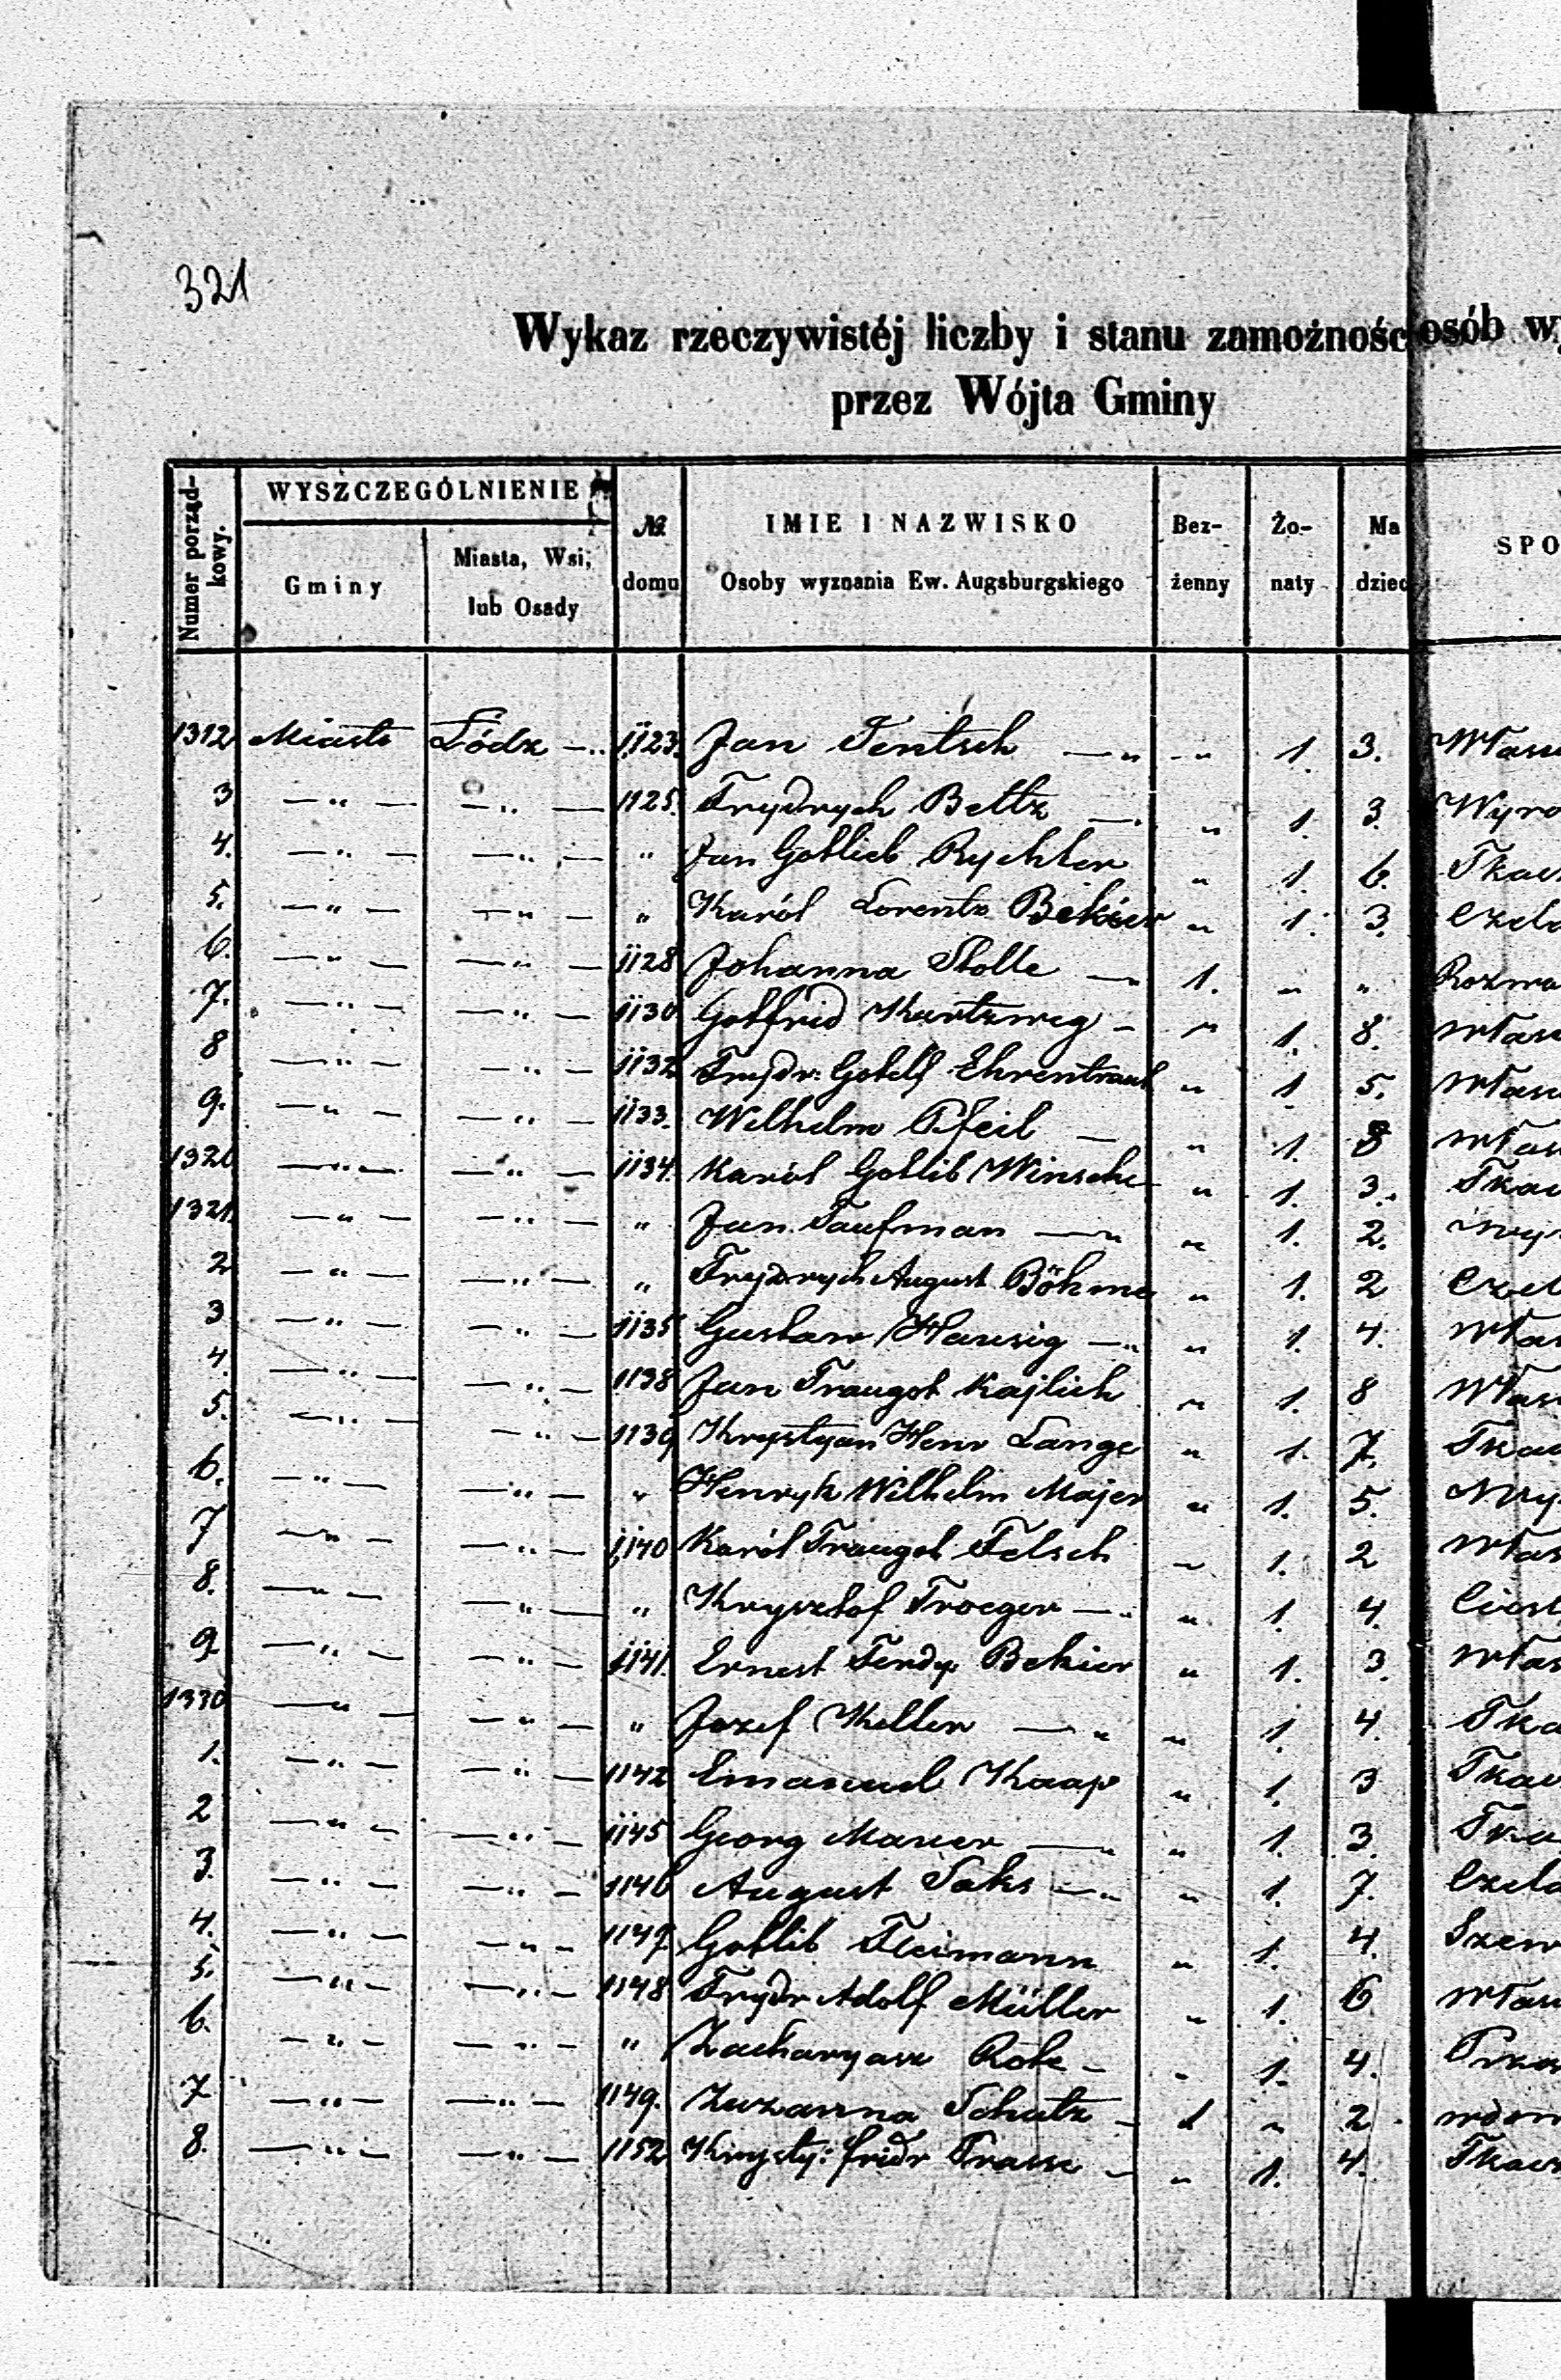 321
Wykaz rzeczywistéj liczby i stanu zamożnośc osób wy
przez Wójta Gminy
Numer porząd-kowy.
WYSZCZEGÓLNIENIE
Gminy
Miasta, Wsi, lub Osady
№ domu
IMIE I NAZWISKO
Osoby wyznania Ew. Augsburgskiego
Bez-żenny
Żo-naty
Ma dziec
SPO
1312 Miasto Łódz -„- 1123. Jan Jentsch —„ -„ 1. 3. Włas
3 —„— —„— 1125. Frydrych Beltz —„ „ 1. 3. Wyro
4. —„— —„— „ Jan Gotlieb Rychter „ 1. 6. Tkac
5. —„— —„— „ Karól Lorentz Bekier „ 1. 3. Czela
6. —„— —„— 1128 Johanna Stolle —„ 1. „ „ Rozma
7. —„— —„— 1130 Gotfrid Kurtzweg - „ 1. 8. Włas
8 —„— —„— 1132 Frydr: Gotelf Ehrentraut „ 1 5. Włas
9. —„— —„— 1133. Wilhelm Pfeil — „ 1. 3 Włas
1320 —„— —„— 1134. Karól Gotlib Winsche „ 1. 3. Tkac
1321. —„— —„— „ Jan Taufman —„ „ 1. 2. Wyr
2 —„— —„— „ Frydrych August Böhme „ 1. 2 Czel
3 —„— —„— 1135 Gustaw Hausig —„ „ 1. 4. Włas
4. —„— —„— 1138 Jan Traugot Kajlich „ 1. 8 Włas
5. —„— —„— 1139 Krystyan Henr Lange „ 1. 7. Tkac
6. —„— —„— „ Henryk Wilhelm Majer „ 1. 5. Wy
7 —„— —„— 1140 Karól Traugot Felsch „ 1. 2 Włas
8. —„— —„— „ Krysztof Troeger —„ „ 1. 4. Ciesl
9 —„— —„— 1141. Ernest Ferdy. Bekier „ 1. 3. Włas
1330 —„— —„— „ Jozef Keller —„ „ 1. 4. Tka
1. —„— —„— 1142 Emanuel Knap „ 1. 3 Tkac
2 —„— —„— 1145 Georg —„ „ 1. 3. Tka
3. —„— —„— 1146 August Saks —„ „ 1. 7. Czela
4. —„— —„— 1147. Gotlib Fleimann „ 1. 4. Szew
5. —„— —„— 1148 Frydr Adolf Müller „ 1. 6 Włas
6. —„— —„— „ Zacharyasz - „ 1. 4.
7 —„— —„— 1149. Zuzanna Schutz - 1 „ 2. wdow
8. —„— —„— 1152 Krysty: fridr - „ 1. 4. Tkac